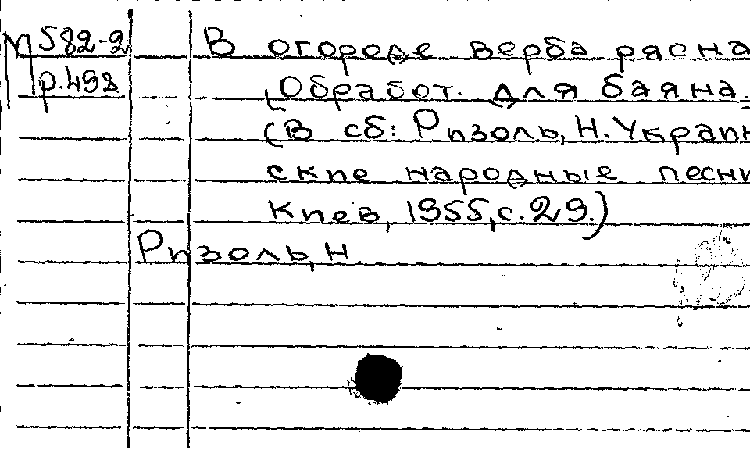 М 582-2
р.498
В огороде верба рясна
(Обработ. для баяна.
(В сб: Ризоль, Н. Украин
ские народные песни
Киев, 1955, с.29.)
Ризоль, Н